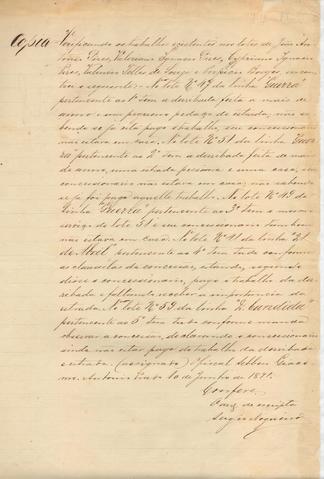 Copia Verificando os trabalhos existentes nos lotes de João An-
tonio Pires, Valeriano Ignacio Pires, Cypriano Ignacio
Pires, Valencio Telles de Souza e Porfirio Borges, encon-
trei o seguinte: No lote Nº 47 da linha "Guerra"
pertencente ao 1º tem a derribada feita a mais de
anno e um pequeno pedaço de estrada, não sa-
bendo se ja foi pago o trabalho, seu concessionario
não estava em casa. No lote Nº 51 da linha "Guer-
ra" pertencente ao 2º tem a derribada feita de mais
de anno, uma estrada e uma casa, seu
concessionario não estava em casa, não sabendo
se ja foi pago aquelle trabalho. No lote Nº 49 da
linha "Guerra" pertencente ao 3º tem o mesmo
serviço do lote 51 e seu concessionario tambem
não estava em casa. No lote Nº 41 da linha "21
de Abril" pertencente ao 4º tem tudo conforme
as clausulas da concessão, estando, segundo
disse o concessionario, pago o trabalho da der-
ribada e faltando receber a importancia da
estrada. No lote Nº 59 da linha "D. Candida"
pertencente ao 5º tem tudo conforme manda
observar a concessão, declarando o concessionario
ainda não estar pago do trabalho da derribada
e estrada. (assignado) Fiscal
Antonio Prado 10 de Junho de 1891.
Confere.
O enc. da escripta
Sergio Nogueira